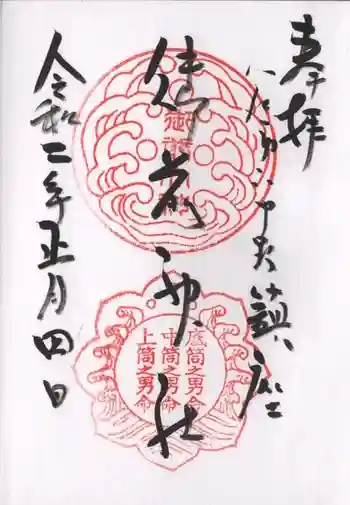 奉拝
中央鎮座
御前神社
令和二年正月四日
御前神社
底筒之男命
中筒之男命
上筒之男命